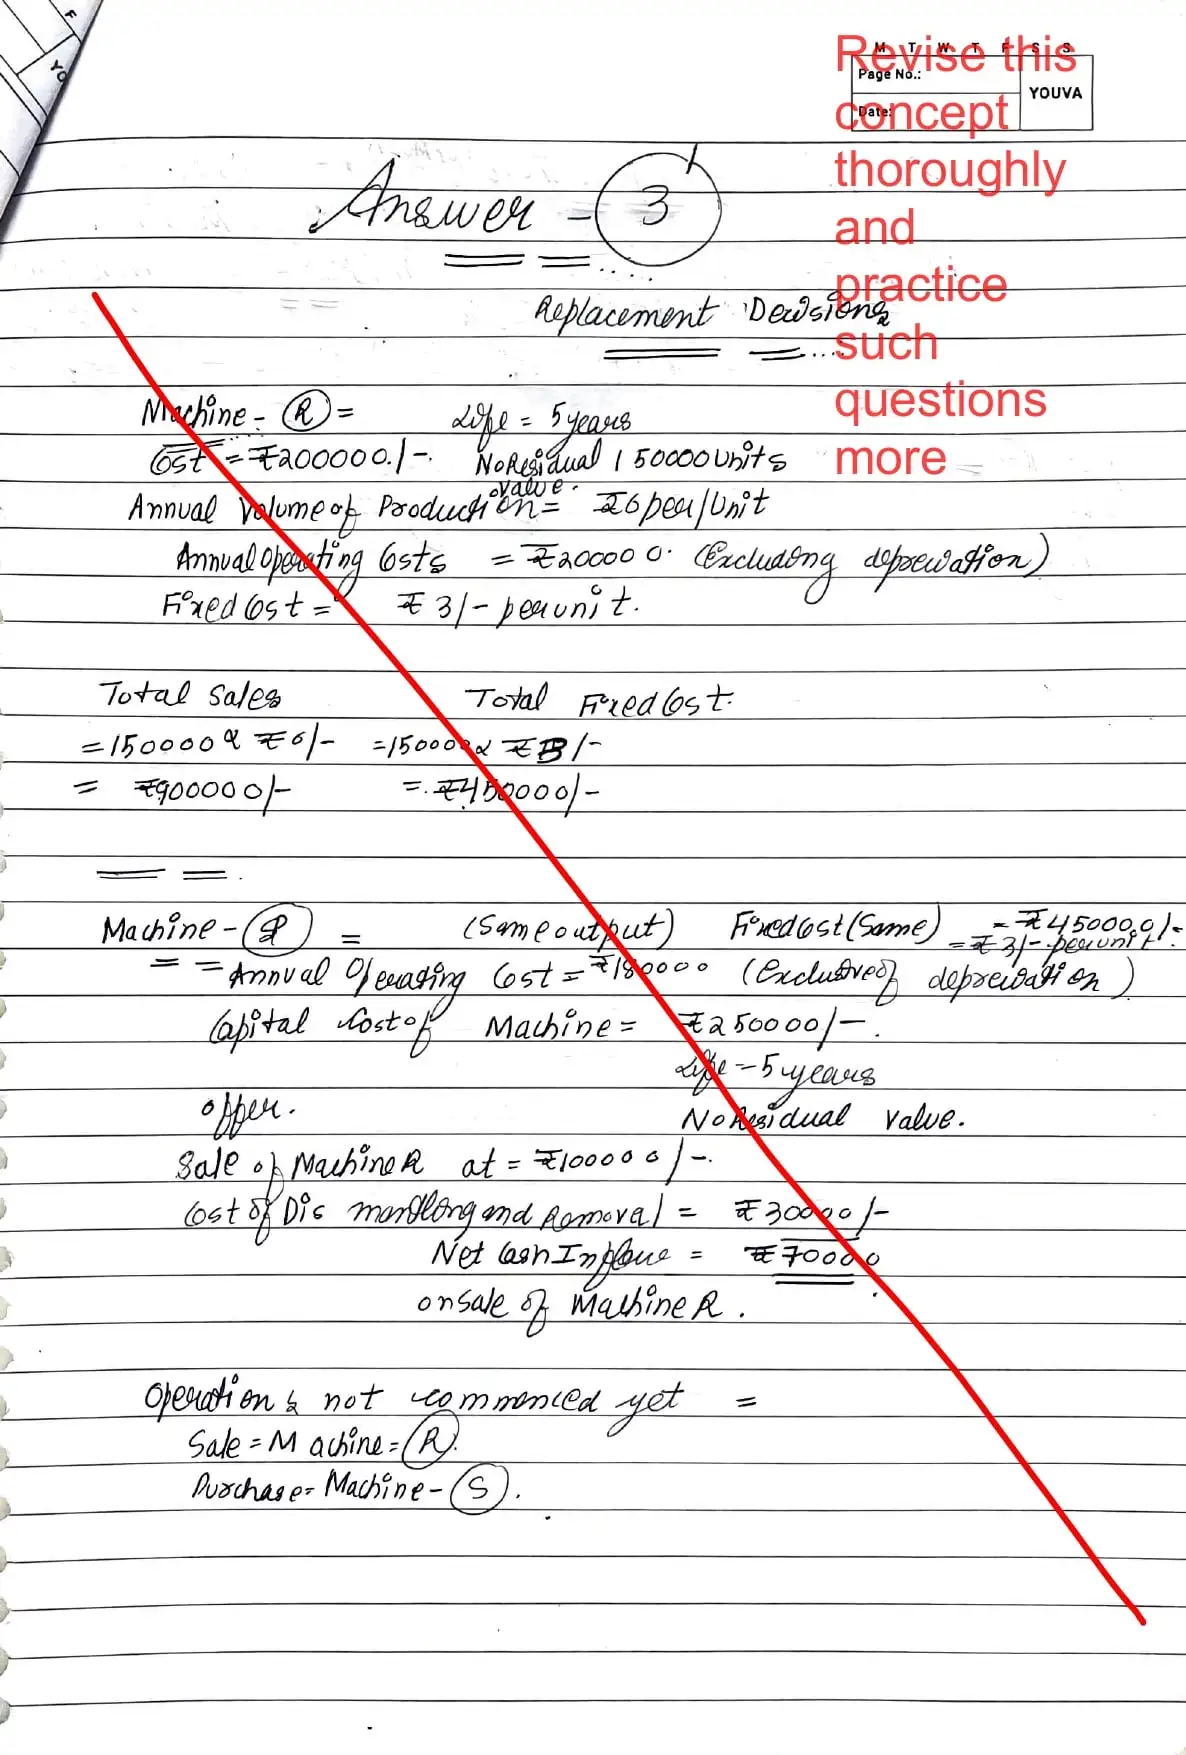 M T W T F S S
Page No.:
Date:
YOUVA
Revise this
concept
thoroughly
and
practice
such
questions
more
Answer - 3
Replacement Decisions
Machine - R = Life = 5 years
Cost = ₹200000/-. No Residual value. 150000 Units
Annual Volume of Production = ₹6 per/Unit
Annual Operating Costs = ₹200000. (Excluding depreciation)
Fixed Cost = ₹3/- per unit.
Total Sales Total Fixed Cost.
= 150000 x ₹6/- = 150000 x ₹3/-
= ₹900000/- = ₹450000/-
Machine - S = (Same output) Fixed Cost (Same) = ₹450000/-
= ₹3/- per unit.
Annual Operating Cost = ₹180000 (Exclusive of depreciation)
Capital Cost of Machine = ₹250000/-.
Life = 5 years
offer. No Residual value.
Sale of Machine R at = ₹100000/-.
Cost of Dis mantling and Removal = ₹30000/-
Net Cash Inflow = ₹70000
on Sale of Machine R.
Operations not commenced yet =
Sale = Machine = R.
Purchase = Machine - S.